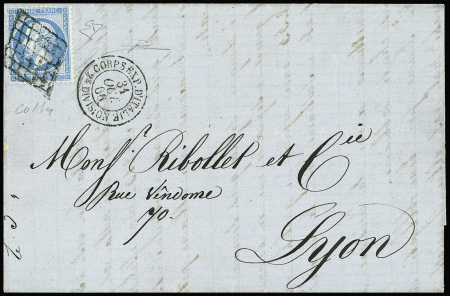 EMPIRE FRANC
CORPS EXP. D'ITALIE
31
OCT
66
DIVISION
Monsr Ribollet et Cie
Rue Vendome
70.
Lyon